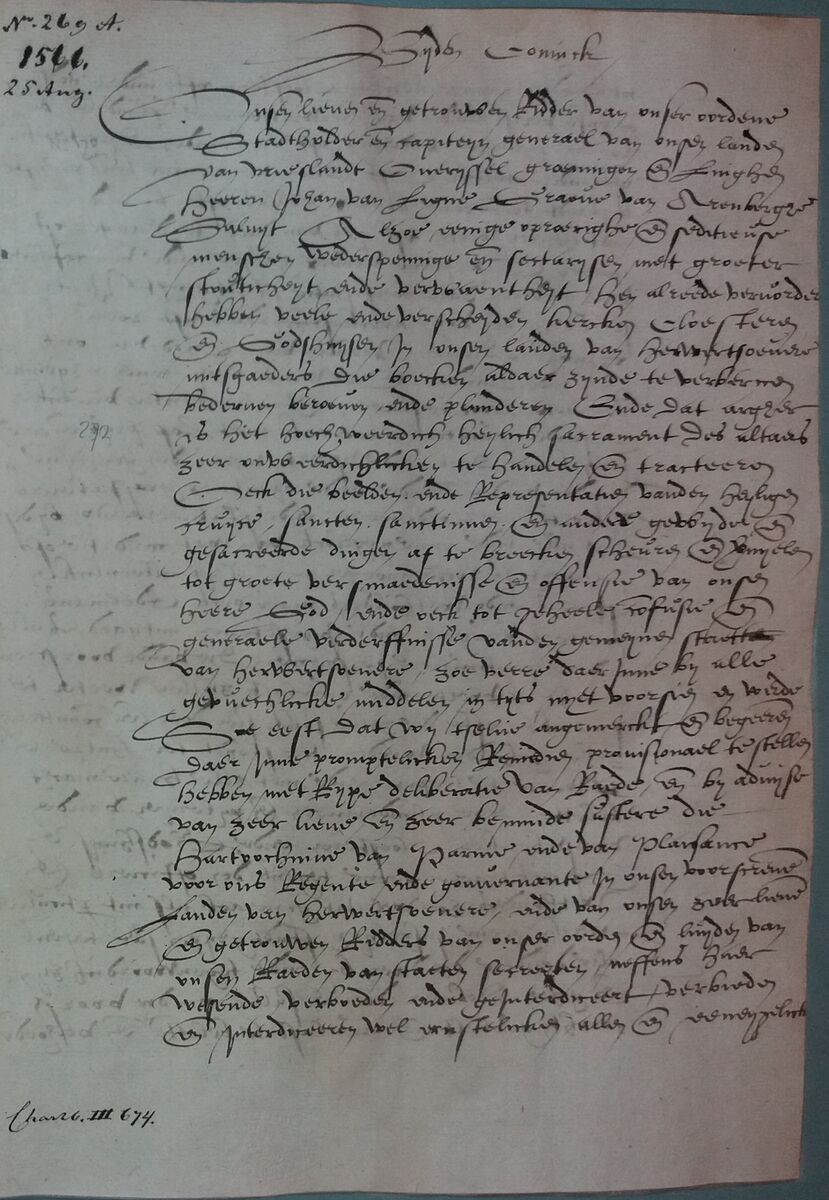 No. 269 A.
1566.
25 Aug.
Byden Coninck
Onsen lieven en getrouwen Ridder van onser oordene
Stadtholder en capiteyn generael van onsen landen
van vrieslandt Overyssel groeningen en Linghen
heeren Johan van Ligne Graeve van Arenberghe
Saluyt Alzoe eenige oproerighe en seditieuse
menschen wederspennige en sectarysen met grooter
stouticheyt ende verwaentheyt hen alreede vervordert
hebben veele ende verscheyden kercken Cloesteren
en Godshuysen In onsen landen van herwertsovere
mitsgaeders die boecken aldaer zynde te verbernen
bederven beroeven ende plunderen Ende dat argher
is het hoech weerdich heylich sacrament des altaers
zeer onweerdichlicken te handelen en tracteeren
Oeck die beelden ende Representatien vanden heyligen
cruyce, sancten sanctinnen en andere gewyde en
gesacreerde dingen af te breecken scheuren en
tot groote versmaedenisse en offensie van onsen
heere God, ende oeck tot geheele confusie en
generaele verderffnisse vanden gemeynen staette
van herwertsovere, zoe verre daer Inne by alle
gevuechlicke middelen in tyts nyet voorsien en werde
Soe eest dat wy tselve angemerckt en begeeren
daer Inne promptelicken Remedien provisionael te stellen
hebben met Rype deliberatie van Raede, en by advyse
van zeer lieve en zeer beminde sustere die
Hartoochinne van Parme ende van Plaisance
voor ons Regente ende gouvernante In onsen voorscreven
Landen van herwertsovere, ende van onsen zeer lieve
en getrouwen Ridders van onser oorden en luyden van
onsen Raeden van staeten secreeten neffens haer
wesende verboeden ende geinterdiceert, verbieden
en Interdiceeren wel ernstelicken allen en eenengelicken
292
Charb. III 674.